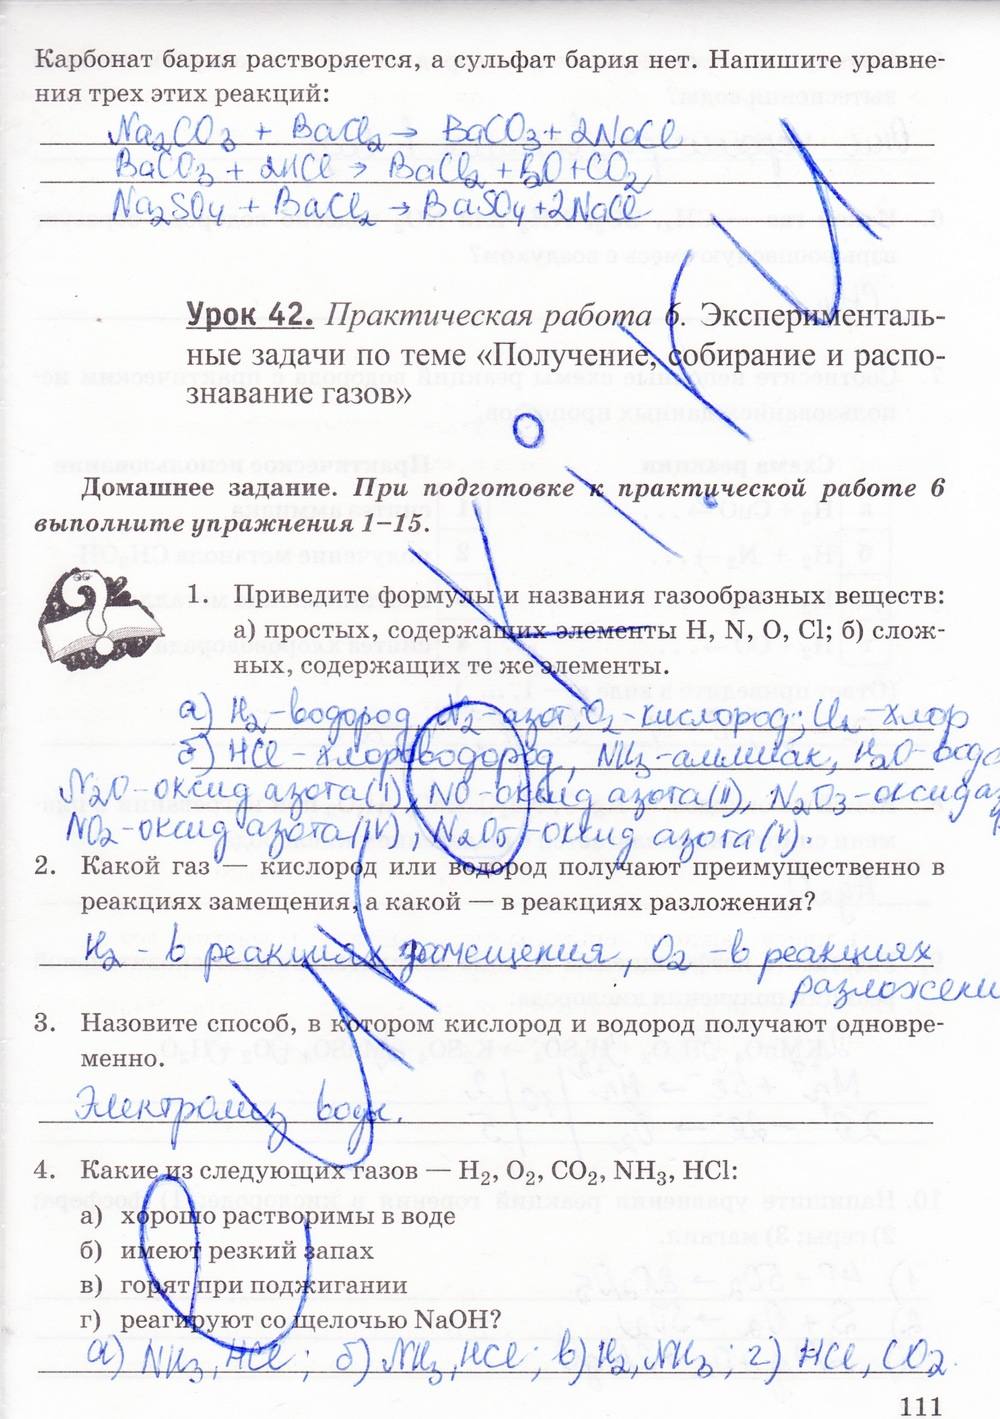 Карбонат бария растворяется, а сульфат бария нет. Напишите уравне-
ния трех этих реакций:
Na₂CO₃ + BaCl₂ → BaCO₃ + 2NaCl
BaCO₃ + 2HCl → BaCl₂ + H₂O + CO₂
Na₂SO₄ + BaCl₂ → BaSO₄ + 2NaCl
Урок 42. Практическая работа 6. Эксперименталь-
ные задачи по теме «Получение, собирание и распо-
знавание газов»
Домашнее задание. При подготовке к практической работе 6
выполните упражнения 1–15.
1. Приведите формулы и названия газообразных веществ:
а) простых, содержащих элементы H, N, O, Cl; б) слож-
ных, содержащих те же элементы.
а) H₂ - водород, N₂ - азот, O₂ - кислород; Cl₂ - хлор
б) HCl - хлороводород, NH₃ - аммиак, H₂O - вода
N₂O - оксид азота(I), NO - оксид азота(II), N₂O₃ - оксид аз
NO₂ - оксид азота(IV), N₂O₅ - оксид азота(V).
2. Какой газ — кислород или водород получают преимущественно в
реакциях замещения, а какой — в реакциях разложения?
H₂ - в реакциях замещения, O₂ - в реакциях
разложени
3. Назовите способ, в котором кислород и водород получают одновре-
менно.
Электролиз воды.
4. Какие из следующих газов — H₂, O₂, CO₂, NH₃, HCl:
а) хорошо растворимы в воде
б) имеют резкий запах
в) горят при поджигании
г) реагируют со щелочью NaOH?
а) NH₃, HCl; б) NH₃, HCl; в) H₂, NH₃; г) HCl, CO₂.
111